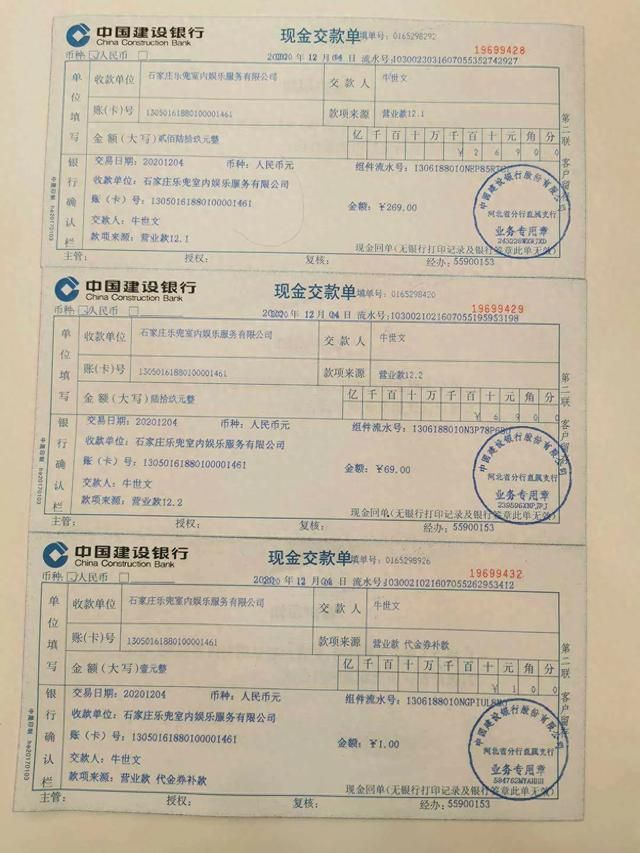 中国建设银行
China Construction Bank
现金交款单 填单号: 0165298292
19699428
币种: 人民币
2020 年 12 月 04 日 流水号:
单位填写
收款单位 石家庄乐兜室内娱乐服务有限公司 交款人 牛世文
账(卡)号 13050161880100001461 款项来源 营业款12.1
金额(大写)贰佰陆拾玖元整 亿千百十万千百十元角分
¥26900
银行确认栏
交易日期: 20201204 币种: 人民币元 组件流水号:
收款单位: 石家庄乐兜室内娱乐服务有限公司
账(卡)号: 13050161880100001461 金额: ¥269.00
交款人: 牛世文
款项来源: 营业款12.1
现金回单(无银行打印记录及银行签章此单无效)
主管: 授权: 复核: 经办: 55900153
第二联 客户留存
中国建设银行股份有限公司
河北省分行直属支行
业务专用章
中国建设银行
China Construction Bank
现金交款单 填单号: 0165298420
19699429
币种: 人民币
2020 年 12 月 04 日 流水号:
单位填写
收款单位 石家庄乐兜室内娱乐服务有限公司 交款人 牛世文
账(卡)号 13050161880100001461 款项来源 营业款12.2
金额(大写)陆拾玖元整 亿千百十万千百十元角分
¥6900
银行确认栏
交易日期: 20201204 币种: 人民币元 组件流水号:
收款单位: 石家庄乐兜室内娱乐服务有限公司
账(卡)号: 13050161880100001461 金额: ¥69.00
交款人: 牛世文
款项来源: 营业款12.2
现金回单(无银行打印记录及银行签章此单无效)
主管: 授权: 复核: 经办: 55900153
第二联 客户留存
中国建设银行股份有限公司
河北省分行直属支行
业务专用章
中国建设银行
China Construction Bank
现金交款单 填单号: 0165298926
19699432
币种: 人民币
2020 年 12 月 04 日 流水号:
单位填写
收款单位 石家庄乐兜室内娱乐服务有限公司 交款人 牛世文
账(卡)号 13050161880100001461 款项来源 营业款 代金券补款
金额(大写)壹元整 亿千百十万千百十元角分
¥100
银行确认栏
交易日期: 20201204 币种: 人民币元 组件流水号:
收款单位: 石家庄乐兜室内娱乐服务有限公司
账(卡)号: 13050161880100001461 金额: ¥1.00
交款人: 牛世文
款项来源: 营业款 代金券补款
现金回单(无银行打印记录及银行签章此单无效)
主管: 授权: 复核: 经办: 55900153
第二联 客户留存
中国建设银行股份有限公司
河北省分行直属支行
业务专用章